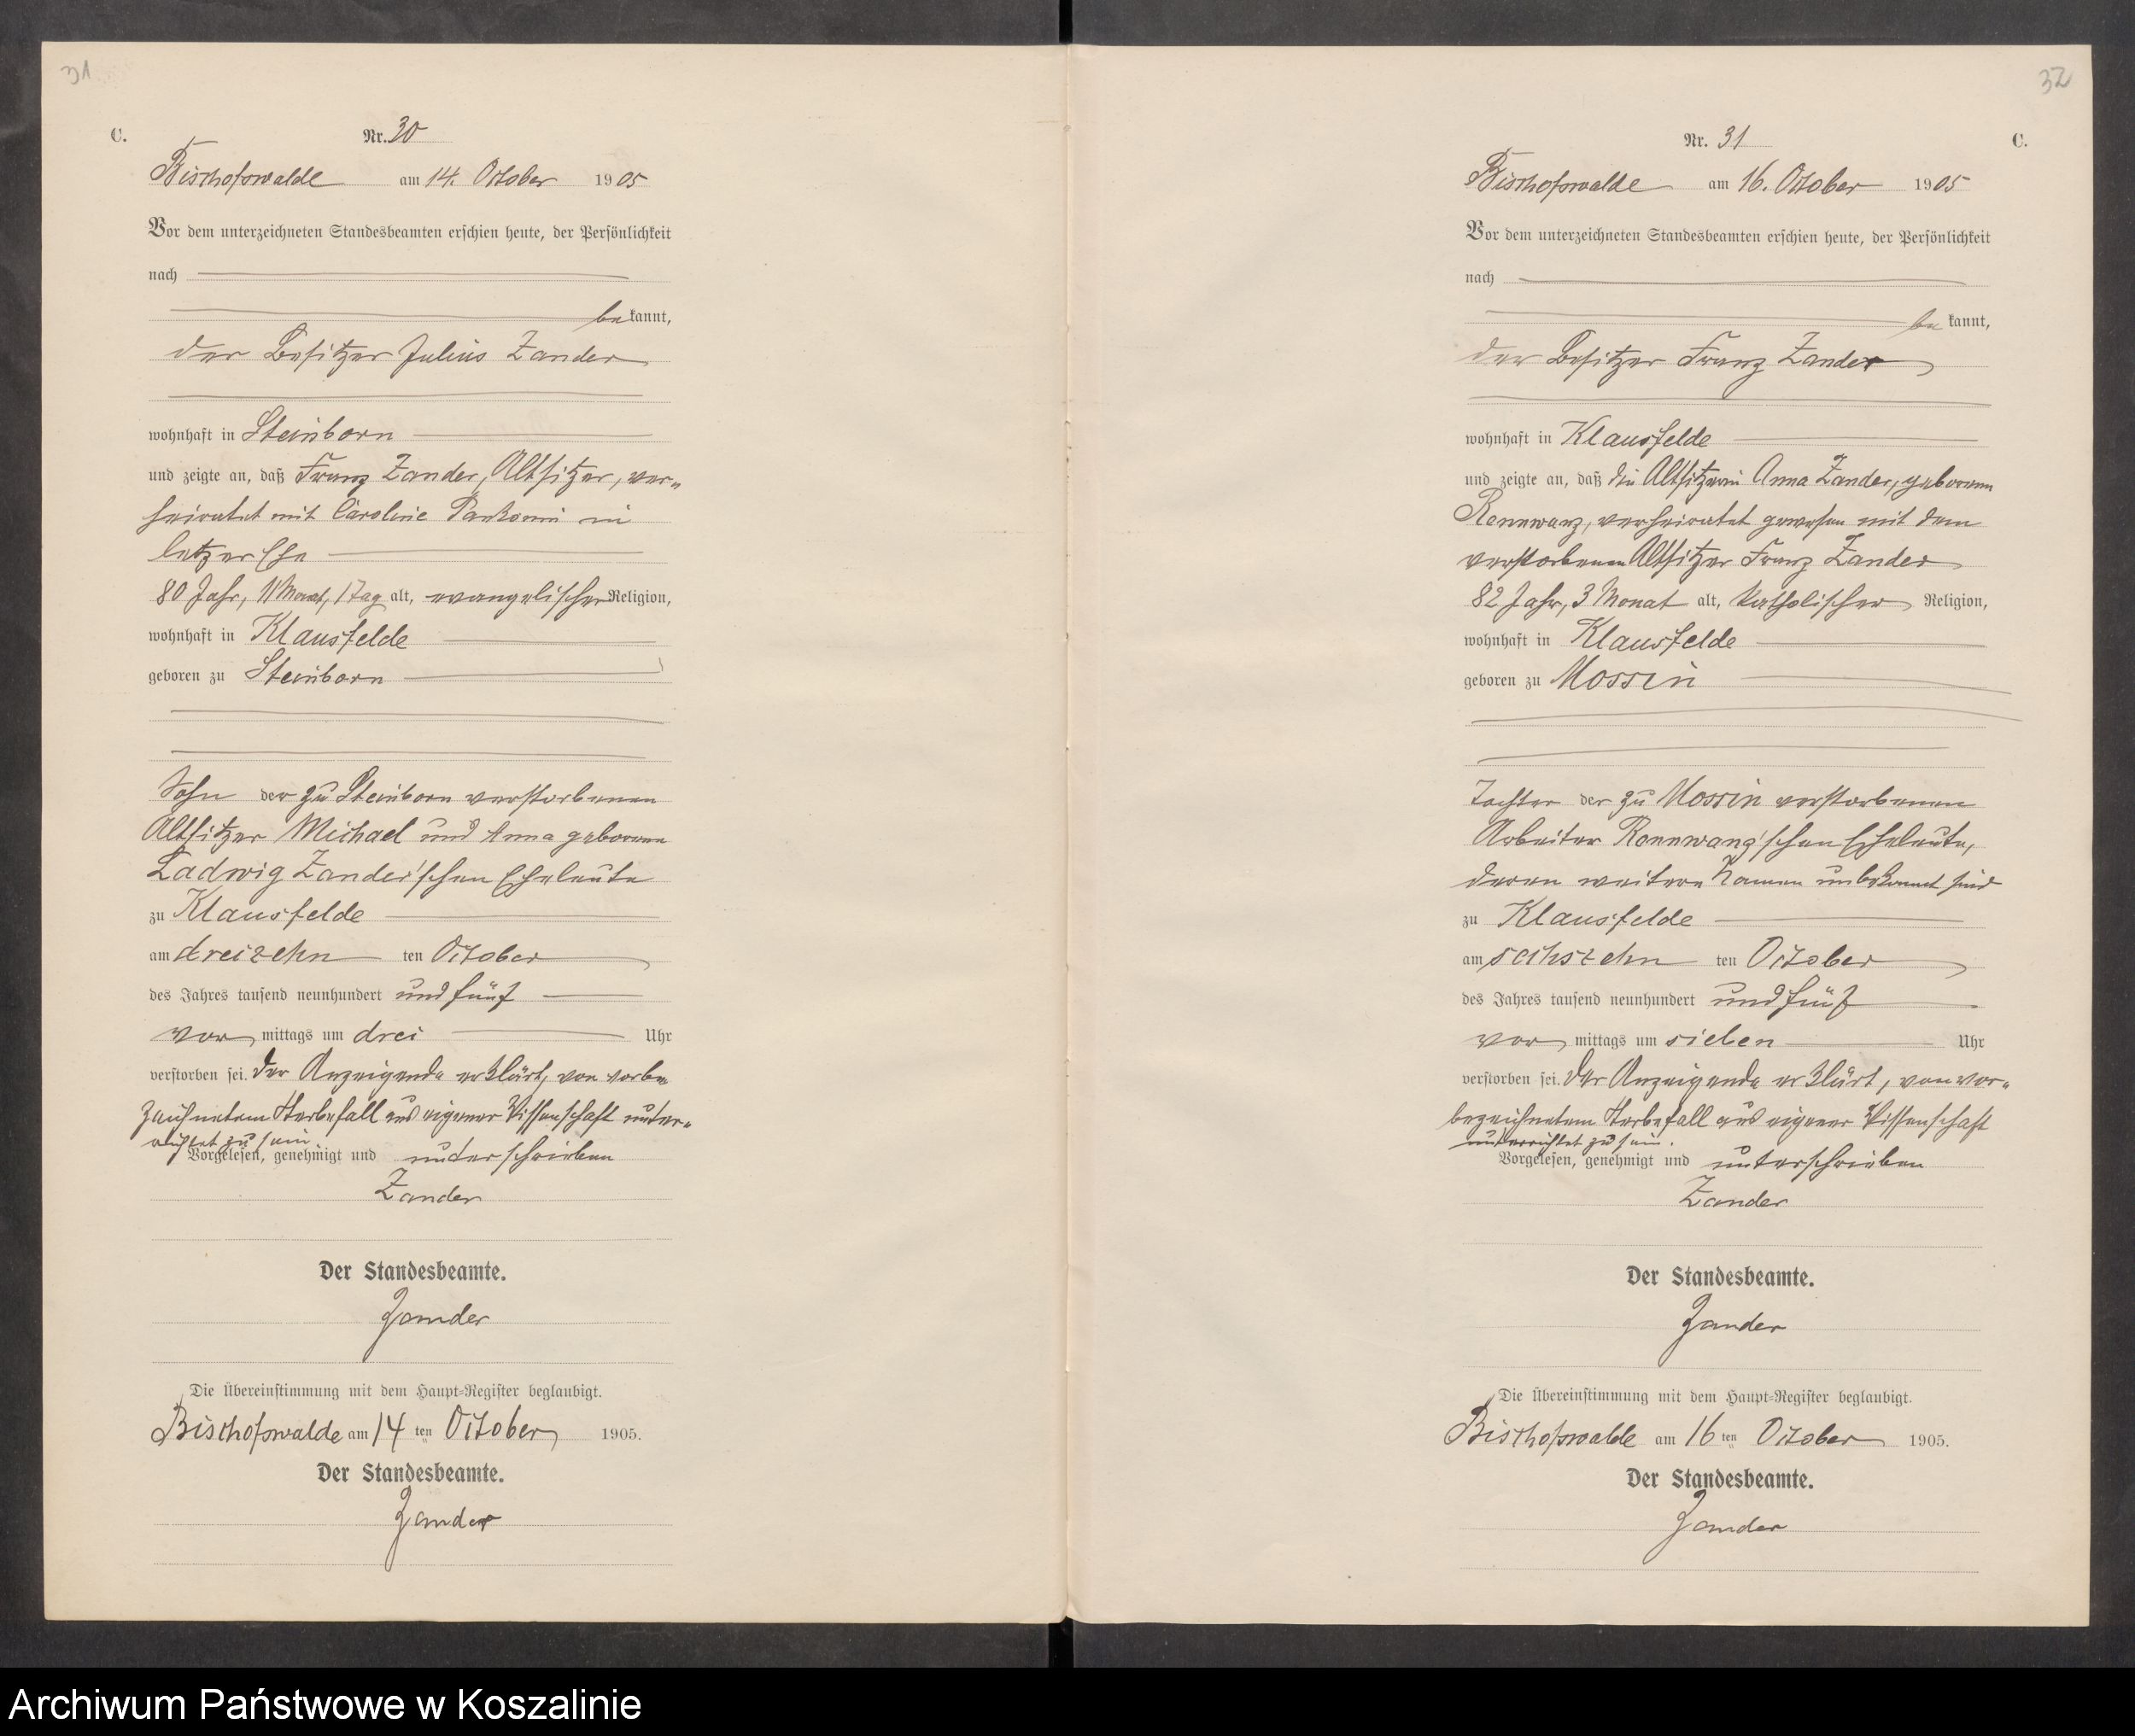 31
C.
Nr. 30
Bischofswalde am 14. October 1905
Vor dem unterzeichneten Standesbeamten erschien heute, der Persönlichkeit
nach
bekannt,
der Besitzer Julius Zander
wohnhaft in Steinborn
und zeigte an, daß Franz Zander, Altsitzer, ver-
heiratet mit Caroline in
letzer Ehe
80 Jahr, 11 Monat, 1 Tag alt, evangelischer Religion,
wohnhaft in Klausfelde
geboren zu Steinborn
Sohn der zu Steinborn verstorbenen
Altsitzer Michael und Anna geborene
Ladwig Zander'schen Eheleute
zu Klausfelde
am dreizehn ten October
des Jahres tausend neunhundert und fünf
vor mittags um drei Uhr
verstorben sei. Der Anzeigende erklärt, von vorbe
zeichnetem Sterbefall aus eigener Wissenschaft unter-
richtet zu sein.
Vorgelesen, genehmigt und unterschrieben
Zander
Der Standesbeamte.
Zander
Die Übereinstimmung mit dem Haupt-Register beglaubigt.
Bischofswalde am 14 ten October 1905.
Der Standesbeamte.
Zander
32
Nr. 31
C.
Bischofswalde am 16. October 1905
Vor dem unterzeichneten Standesbeamten erschien heute, der Persönlichkeit
nach
bekannt,
der Besitzer Franz Zander
wohnhaft in Klausfelde
und zeigte an, daß die Altsitzerin Anna Zander, geborenen
Rennwanz, verheiratet gewesen mit dem
verstorbenen Altsitzer Franz Zander
82 Jahr, 3 Monat alt, katholischer Religion,
wohnhaft in Klausfelde
geboren zu Mossin
Tochter der zu Mossin verstorbenen
Arbeiter Rennwanz'schen Eheleute,
deren weitere Namen unbekannt sind
zu Klausfelde
am sechszehn ten October
des Jahres tausend neunhundert und fünf
vor mittags um sieben Uhr
verstorben sei. Der Anzeigende erklärt, von vor-
bezeichnetem Sterbefall aus eigener Wissenschaft
unterrichtet zu sein.
Vorgelesen, genehmigt und unterschrieben
Zander
Der Standesbeamte.
Zander
Die Übereinstimmung mit dem Haupt-Register beglaubigt.
Bischofswalde am 16 ten October 1905.
Der Standesbeamte.
Zander
Archiwum Państwowe w Koszalinie